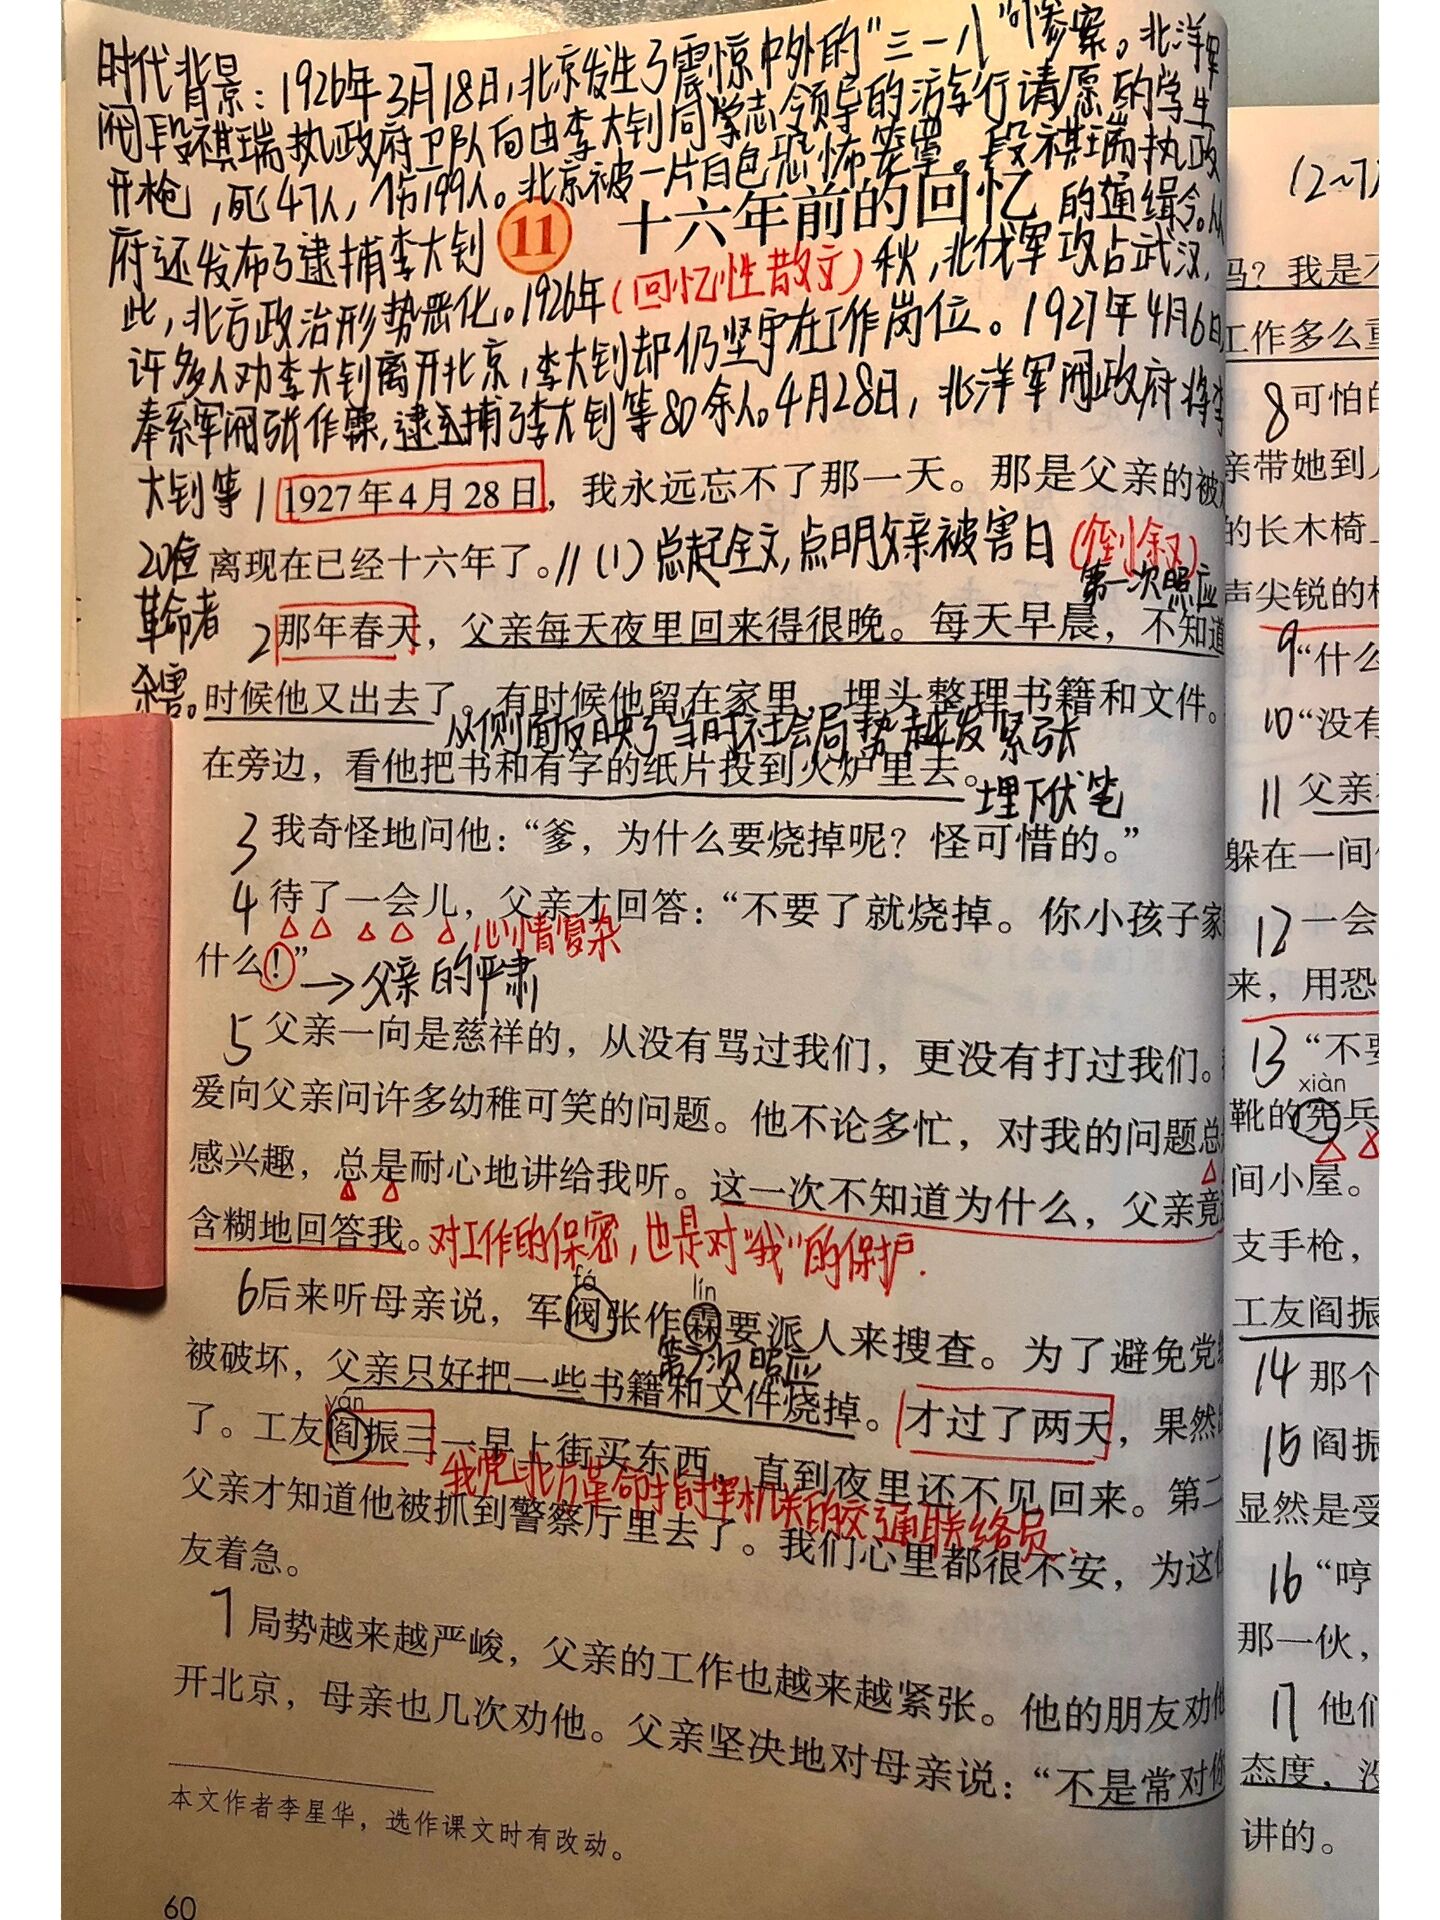 时代背景：1926年3月18日，北京发生了震惊中外的"三一八"惨案。北洋军
阀段祺瑞执政府卫队向由李大钊同志领导的游行请愿的学生
开枪，死47人，伤199人。北京被一片白色恐怖笼罩。段祺瑞执政
府还发布了逮捕李大钊的通缉令。从
11 十六年前的回忆
(回忆性散文)
此，北方政治形势恶化。1926年秋，北伐军攻占武汉，
许多人劝李大钊离开北京，李大钊却仍坚守在工作岗位。1927年4月6日，
奉系军阀张作霖，逮捕了李大钊等80余人。4月28日，北洋军阀政府将李
大钊等
20位
革命者
杀害。
1 1927年4月28日，我永远忘不了那一天。那是父亲的被
离现在已经十六年了。//(1)总起全文，点明父亲被害日(倒叙)
第一次照应
2 那年春天，父亲每天夜里回来得很晚。每天早晨，不知道
时候他又出去了。有时候他留在家里，埋头整理书籍和文件。
从侧面反映了当时社会局势越发紧张
在旁边，看他把书和有字的纸片投到火炉里去。
埋下伏笔
3 我奇怪地问他：“爹，为什么要烧掉呢？怪可惜的。”
4 待了一会儿，父亲才回答：“不要了就烧掉。你小孩子家
心情复杂
什么！” →父亲的严肃
5 父亲一向是慈祥的，从没有骂过我们，更没有打过我们。
爱向父亲问许多幼稚可笑的问题。他不论多忙，对我的问题总
感兴趣，总是耐心地讲给我听。这一次不知道为什么，父亲竟
含糊地回答我。对工作的保密，也是对"我"的保护.
fá lín
6 后来听母亲说，军阀张作霖要派人来搜查。为了避免党
第2次照应
被破坏，父亲只好把一些书籍和文件烧掉。才过了两天，果然
yán
了。工友阎振三一早上街买东西，直到夜里还不见回来。第二
我党北方革命指挥机关的交通联络员.
父亲才知道他被抓到警察厅里去了。我们心里都很不安，为这
友着急。
7 局势越来越严峻，父亲的工作也越来越紧张。他的朋友劝他
开北京，母亲也几次劝他。父亲坚决地对母亲说：“不是常对你
本文作者李星华，选作课文时有改动。
60
吗？我是不
工作多么重
8 可怕的
亲带她到
的长木椅上
声尖锐的
9 “什么
10 “没有
11 父亲
躲在一间
12 一会
来，用恐
13 “不要
xiàn
靴的宪兵
间小屋。
支手枪，
工友阎振
14 那个
15 阎振
显然是受
16 “哼
那一伙，
17 他们
态度，没
讲的。